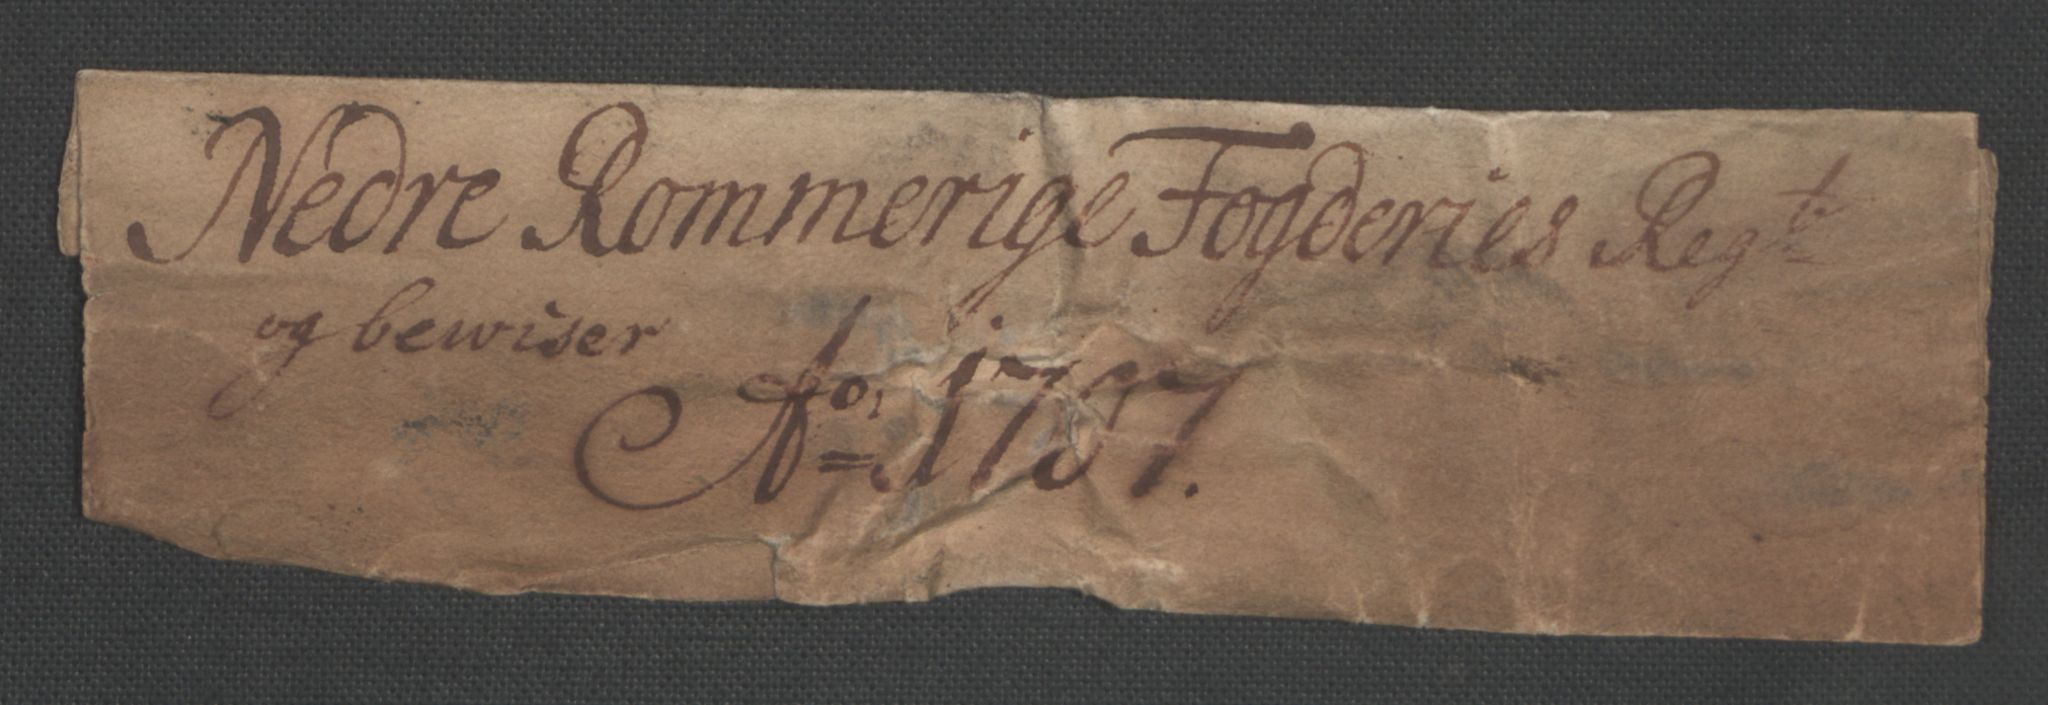 Nedre Rommerige Fogderies Regt
og bewiser
Ao 1757.